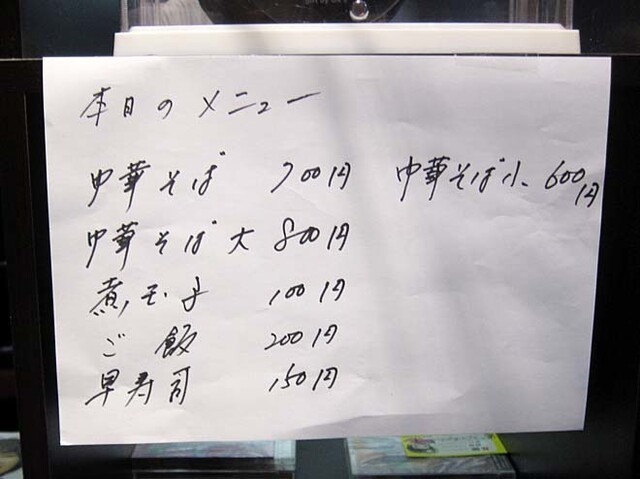 本日のメニュー
中華そば 700円
中華そば小 600円
中華そば大 800円
煮玉子 100円
ご飯 200円
早寿司 150円